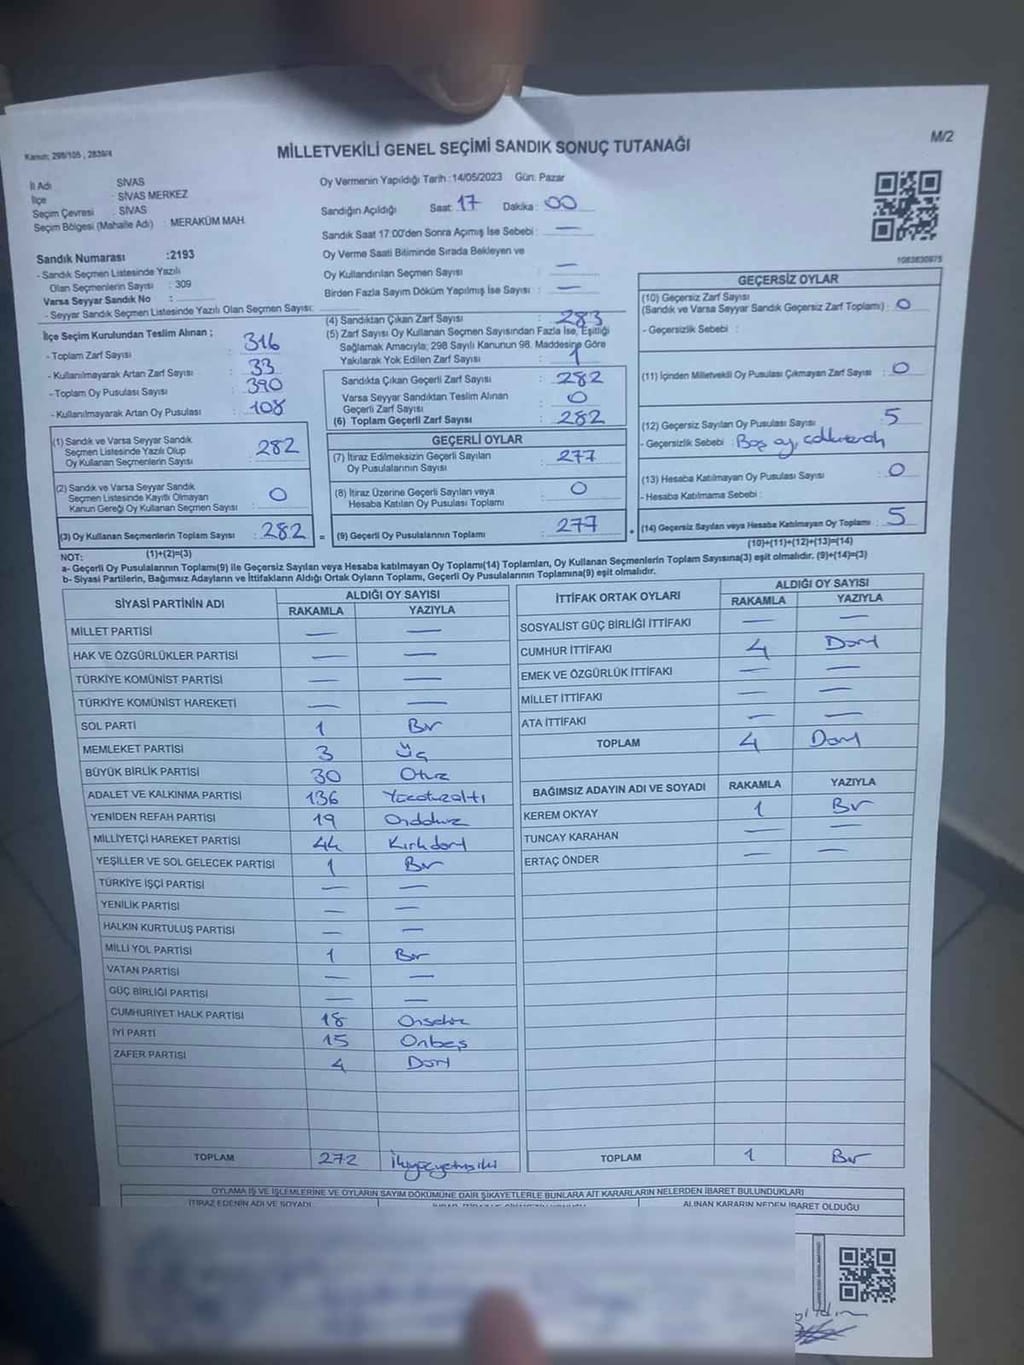 Kanun; 298/105 , 2839/4
MİLLETVEKİLİ GENEL SEÇİMİ SANDIK SONUÇ TUTANAĞI
M/2
İl Adı : SİVAS
İlçe : SİVAS MERKEZ
Seçim Çevresi : SİVAS
Seçim Bölgesi (Mahalle Adı) : MERAKÜM MAH.
Sandık Numarası :2193
- Sandık Seçmen Listesinde Yazılı
Olan Seçmenlerin Sayısı : 309
Varsa Seyyar Sandık No :
- Seyyar Sandık Seçmen Listesinde Yazılı Olan Seçmen Sayısı:
Oy Vermenin Yapıldığı Tarih :14/05/2023 Gün: Pazar
Sandığın Açıldığı Saat: 17 Dakika : 00
Sandık Saat 17:00'den Sonra Açımış İse Sebebi : —
Oy Verme Saati Bitiminde Sırada Bekleyen ve
Oy Kullandırılan Seçmen Sayısı : —
Birden Fazla Sayım Döküm Yapılmış İse Sayısı : —
1083830975
İlçe Seçim Kurulundan Teslim Alınan ;
- Toplam Zarf Sayısı : 316
- Kullanılmayarak Artan Zarf Sayısı : 33
- Toplam Oy Pusulası Sayısı : 390
- Kullanılmayarak Artan Oy Pusulası : 108
(1) Sandık ve Varsa Seyyar Sandık
Seçmen Listesinde Yazılı Olup
Oy Kullanan Seçmenlerin Sayısı : 282
(2) Sandık ve Varsa Seyyar Sandık
Seçmen Listesinde Kayıtlı Olmayan
Kanun Gereği Oy Kullanan Seçmen Sayısı : 0
(3) Oy Kullanan Seçmenlerin Toplam Sayısı : 282
(1)+(2)=(3)
(4) Sandıktan Çıkan Zarf Sayısı : 283
(5) Zarf Sayısı Oy Kullanan Seçmen Sayısından Fazla İse, Eşitliği
Sağlamak Amacıyla; 298 Sayılı Kanunun 98. Maddesine Göre
Yakılarak Yok Edilen Zarf Sayısı : 1
Sandıkta Çıkan Geçerli Zarf Sayısı : 282
Varsa Seyyar Sandıktan Teslim Alınan
Geçerli Zarf Sayısı : 0
(6) Toplam Geçerli Zarf Sayısı : 282
GEÇERLİ OYLAR
(7) İtiraz Edilmeksizin Geçerli Sayılan
Oy Pusulalarının Sayısı : 277
(8) İtiraz Üzerine Geçerli Sayılan veya
Hesaba Katılan Oy Pusulası Toplamı : 0
= (9) Geçerli Oy Pusulalarının Toplamı : 277
GEÇERSİZ OYLAR
(10) Geçersiz Zarf Sayısı
(Sandık ve Varsa Seyyar Sandık Geçersiz Zarf Toplamı) : 0
- Geçersizlik Sebebi :
(11) İçinden Milletvekili Oy Pusulası Çıkmayan Zarf Sayısı : 0
(12) Geçersiz Sayılan Oy Pusulası Sayısı : 5
- Geçersizlik Sebebi : Boş oy,
(13) Hesaba Katılmayan Oy Pusulası Sayısı : 0
- Hesaba Katılmama Sebebi :
+ (14) Geçersiz Sayılan veya Hesaba Katılmayan Oy Toplamı : 5
(10)+(11)+(12)+(13)=(14)
NOT:
a- Geçerli Oy Pusulalarının Toplamı(9) ile Geçersiz Sayılan veya Hesaba katılmayan Oy Toplamı(14) Toplamları, Oy Kullanan Seçmenlerin Toplam Sayısına(3) eşit olmalıdır. (9)+(14)=(3)
b- Siyasi Partilerin, Bağımsız Adayların ve İttifakların Aldığı Ortak Oyların Toplamı, Geçerli Oy Pusulalarının Toplamına(9) eşit olmalıdır.
SİYASİ PARTİNİN ADI ALDIĞI OY SAYISI
RAKAMLA YAZIYLA
MİLLET PARTİSİ — —
HAK VE ÖZGÜRLÜKLER PARTİSİ — —
TÜRKİYE KOMÜNİST PARTİSİ — —
TÜRKİYE KOMÜNİST HAREKETİ — —
SOL PARTİ 1 Bir
MEMLEKET PARTİSİ 3 Üç
BÜYÜK BİRLİK PARTİSİ 30 Otuz
ADALET VE KALKINMA PARTİSİ 136 Yüzotuzaltı
YENİDEN REFAH PARTİSİ 19 Ondokuz
MİLLİYETÇİ HAREKET PARTİSİ 44 Kırkdört
YEŞİLLER VE SOL GELECEK PARTİSİ 1 Bir
TÜRKİYE İŞÇİ PARTİSİ — —
YENİLİK PARTİSİ — —
HALKIN KURTULUŞ PARTİSİ — —
MİLLİ YOL PARTİSİ 1 Bir
VATAN PARTİSİ — —
GÜÇ BİRLİĞİ PARTİSİ — —
CUMHURİYET HALK PARTİSİ 18 Onsekiz
İYİ PARTİ 15 Onbeş
ZAFER PARTİSİ 4 Dört
TOPLAM 272 İkiyüzyetmişiki
İTTİFAK ORTAK OYLARI ALDIĞI OY SAYISI
RAKAMLA YAZIYLA
SOSYALİST GÜÇ BİRLİĞİ İTTİFAKI — —
CUMHUR İTTİFAKI 4 Dört
EMEK VE ÖZGÜRLÜK İTTİFAKI — —
MİLLET İTTİFAKI — —
ATA İTTİFAKI — —
TOPLAM 4 Dört
BAĞIMSIZ ADAYIN ADI VE SOYADI RAKAMLA YAZIYLA
KEREM OKYAY 1 Bir
TUNCAY KARAHAN — —
ERTAÇ ÖNDER — —
TOPLAM 1 Bir
OYLAMA İŞ VE İŞLEMLERİNE VE OYLARIN SAYIM DÖKÜMÜNE DAİR ŞİKAYETLERLE BUNLARA AİT KARARLARIN NELERDEN İBARET BULUNDUKLARI
İTİRAZ EDENİN ADI VE SOYADI
ALINAN KARARIN NEDEN İBARET OLDUĞU